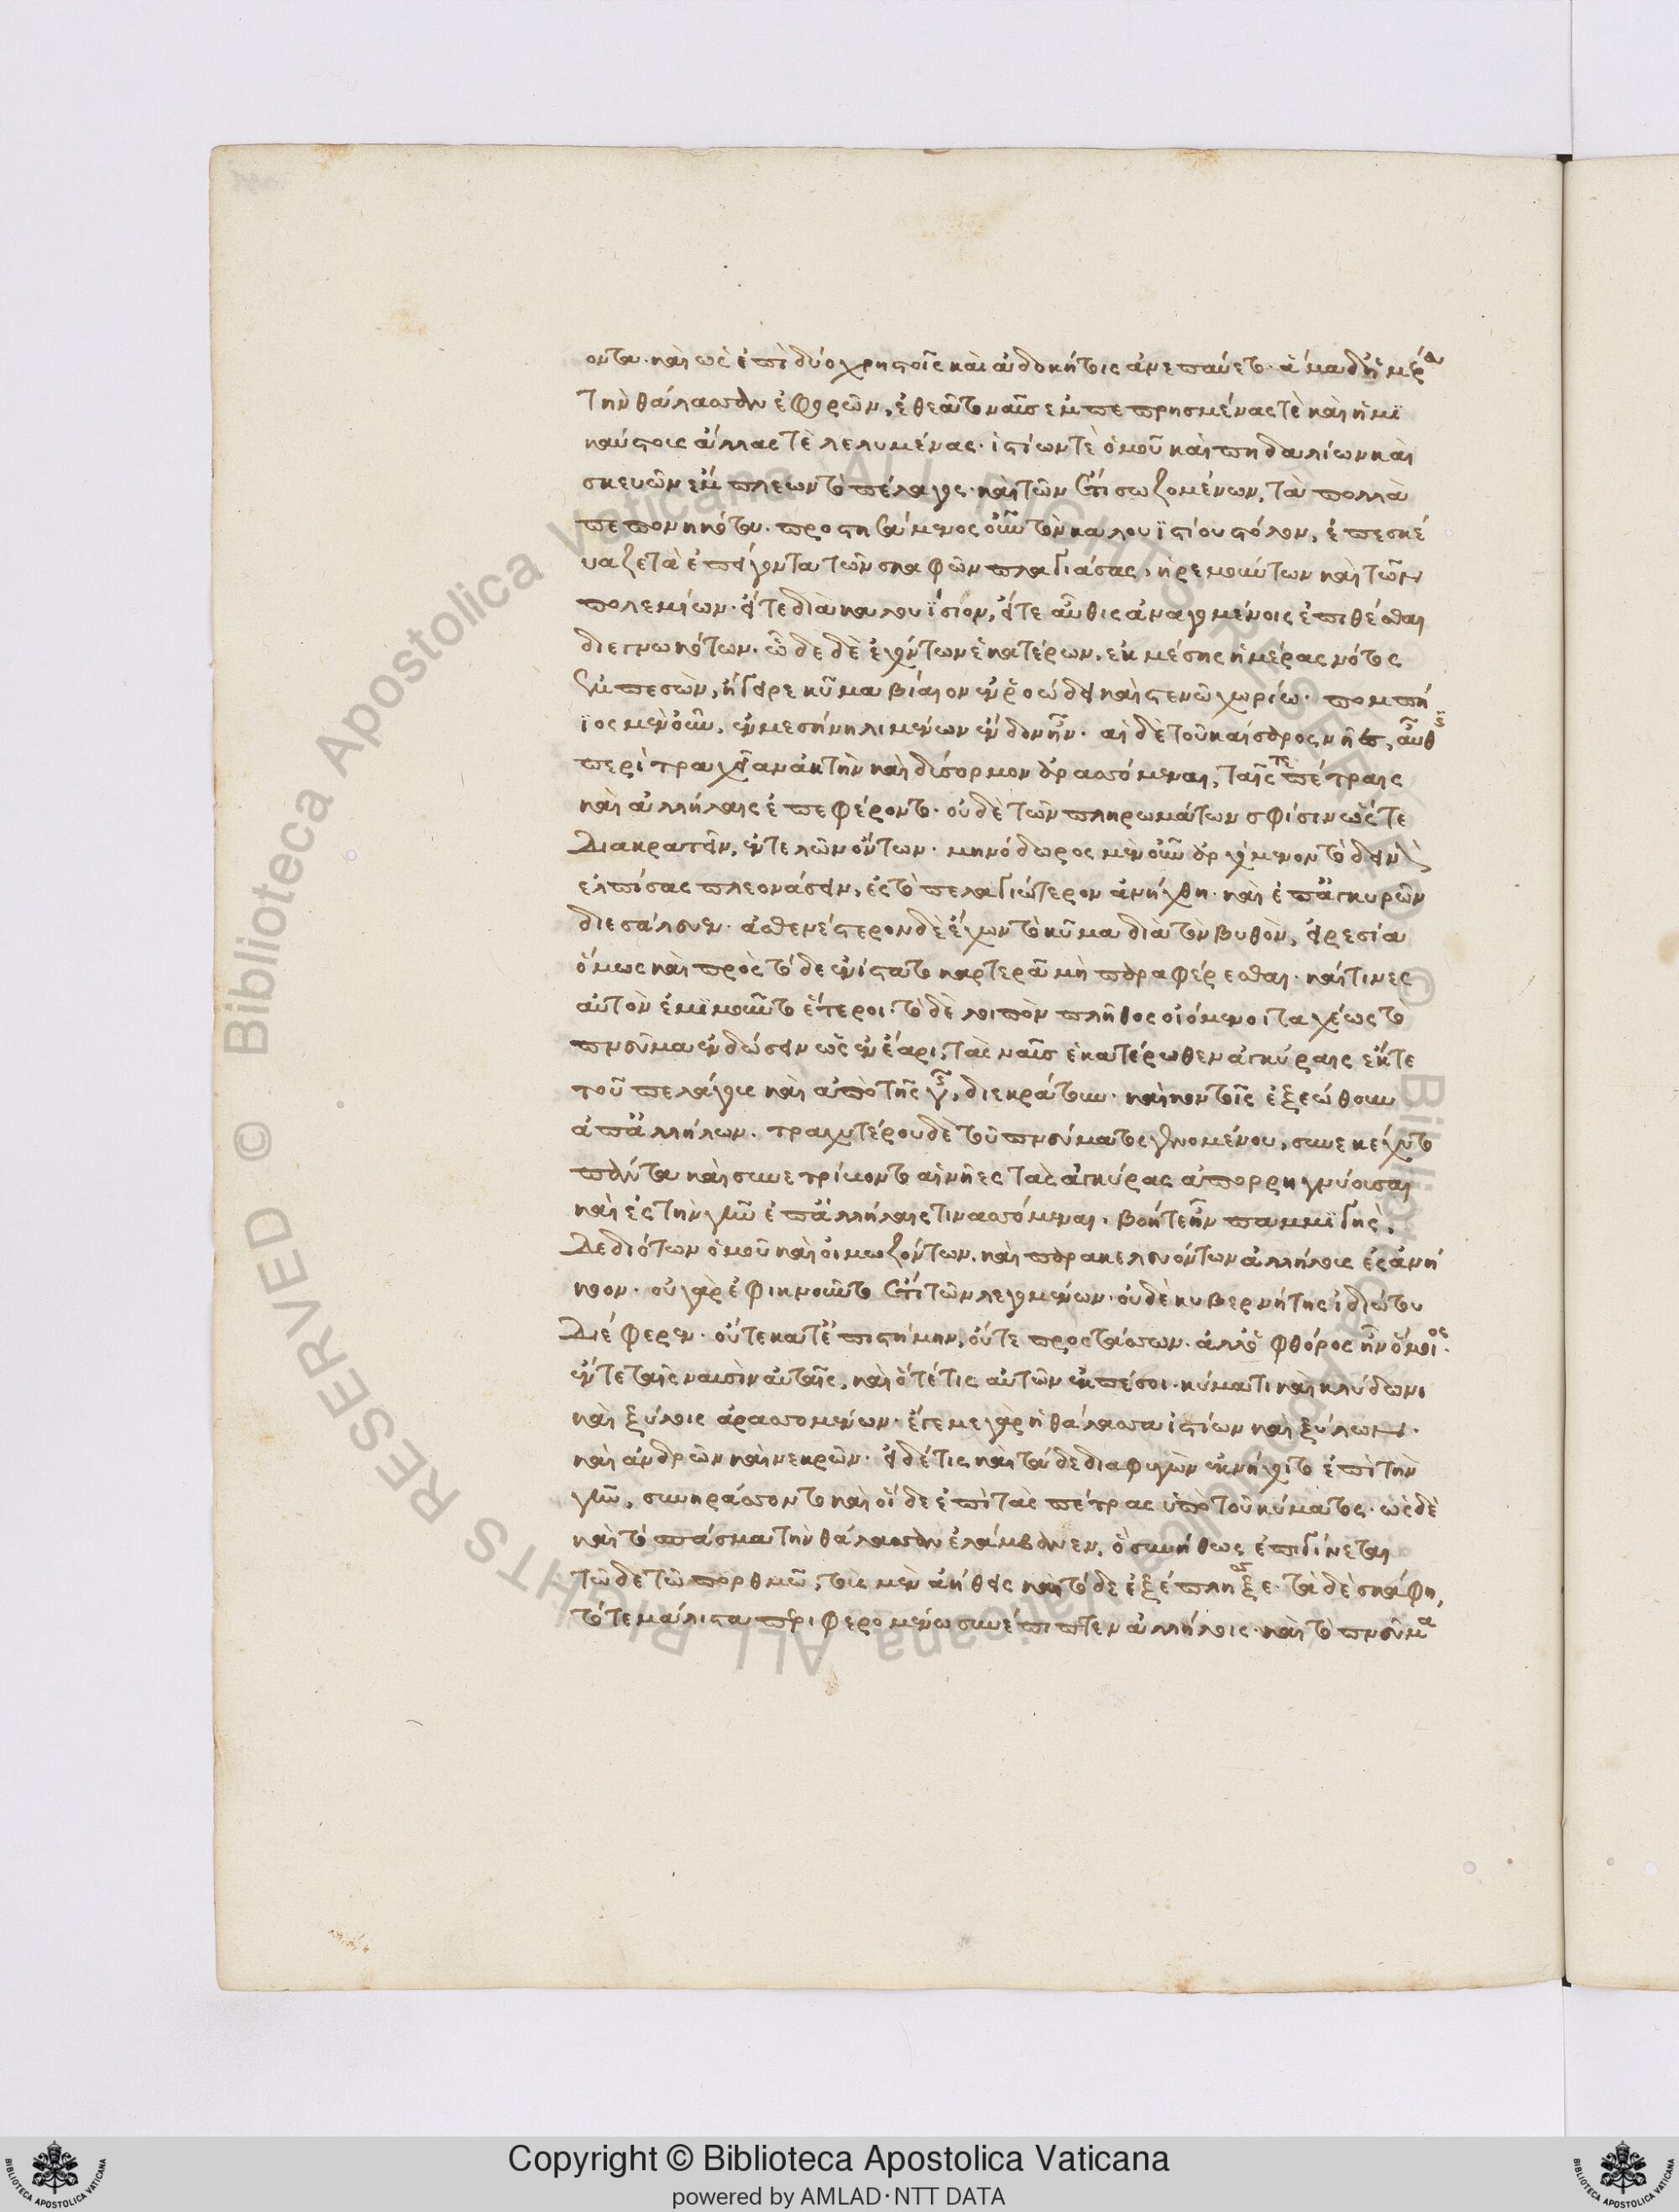 οντα. καὶ ὡς ἐπὶ δύο χρηστοῖς καὶ ἀδοκήτοις ἀνεπαύετο. ἅμα δ' ἡμέρα
τὴν θάλασσαν ἐφορῶν, ἐθεᾶτο ναῦς ἐμπεπρησμένας τὲ καὶ ἡμι
καύστους ἄλλας τὲ λελυμένας. ἱστίων τὲ ὁμοῦ καὶ πηδαλίων καὶ
σκευῶν ἔμπλεων τὸ πέλαγος. καὶ τῶν ἔτι σωζομένων, τὰ πολλὰ
πεπονηκότα. προστησάμενος οὖν τὸν καλουϊσίου στόλον, ἐπεσκέ
υαζε τὰ ἐπείγοντα τῶν σκαφῶν πλαγιάσας, ἠρεμούντων καὶ τῶν
πολεμίων. εἴτε διὰ καλουΐσιον, εἴτε αὖθις ἀναγομένοις ἐπιθέσθαι
διεγνωκότων. ὧδε δὲ ἐχόντων ἑκατέρων, ἐκ μέσης ἡμέρας νότος
ἐμπεσὼν, ἤγειρε κῦμα βίαιον ἐν ῥοώδει καὶ στενῶ χωρίω. πομπή
ϊος μὲν οὖν, ἐν μεσήνη λιμένων ἔνδον ἦν. αἱ δὲ τοῦ καίσαρος νῆες, αὖθις
περὶ τραχεῖαν ἀκτὴν καὶ δύσορμον ἀρασσόμεναι, ταῖς τε πέτραις
καὶ ἀλλήλαις ἐπεφέροντο. οὐδὲ τῶν πληρωμάτων σφίσιν ὥστε
διακρατεῖν, ἐντελῶν ὄντων. μηνόδωρος μὲν οὖν ἀρχόμενον τὸ δεινὸν
ἐλπίσας πλεονάσειν, ἐς τὸ πελαγιώτερον ἀνήχθη. καὶ ἐπ' ἀγκυρῶν
διεσάλευεν. ἀσθενέστερον δὲ ἔχων τὸ κῦμα διὰ τὸν βυθὸν, εἰρεσία
ὅμως καὶ πρὸς τόδε ἐνίστατο καρτερᾶ μὴ παραφέρεσθαι. καί τινες
αὐτὸν ἐμιμοῦντο ἕτεροι. τὸ δὲ λοιπὸν πλῆθος οἰόμενοι ταχέως τὸ
πνεῦμα ἐνδώσειν ὡς ἐν ἔαρι, τὰς ναῦς ἑκατέρωθεν ἀγκύραις ἔκ τε
τοῦ πελάγους καὶ ἀπὸ τῆς γῆς, διεκράτουν. καὶ κοντοῖς ἐξεώθουν
ἀπ' ἀλλήλων. τραχυτέρου δὲ τοῦ πνεύματος γενομένου, συνεκέχυτο
πάντα καὶ συνετρίβοντο αἱ νῆες τὰς ἀγκύρας ἀπορρηγνύουσαι
καὶ ἐς τὴν γῆν ἐπ' ἀλλήλαις τινασσόμεναι. βοή τε ἦν παμμϊγὴς,
δεδιότων ὁμοῦ καὶ οἰμωζόντων. καὶ παρακελευόντων ἀλλήλοις ἐς ἀνή
κοον. οὐ γὰρ ἐφικνοῦντο ἔτι τῶν λεγομένων. οὐδὲ κυβερνήτης ἰδιώτου
διέφερεν. οὔτε κατ' ἐπιστήμην, οὔτε προστάσσων. ἀλλ' ὁ φθόρος ἦν ὅμοιος.
ἔν τε ταῖς ναυσὶν αὐταῖς, καὶ ὅτέ τις αὐτῶν ἐκπέσοι. κύματι καὶ κλύδωνι
καὶ ξύλοις ἀρασσομένων. ἔγεμε γὰρ ἡ θάλασσα ἱστίων καὶ ξύλων.
καὶ ἀνδρῶν καὶ νεκρῶν. εἰ δέ τις καὶ τάδε διαφυγὼν ἐκνήχοιτο ἐπὶ τὴν
γῆν, συνηράσσοντο καὶ οἵδε ἐπὶ τὰς πέτρας ὑπὸ τοῦ κύματος. ὡς δὲ
καὶ τὸ σπάσμα τὴν θάλασσαν ἐλάμβανεν, ὃ συνήθως ἐπιγίνεται
τῶδε τῶ πορθμῶ, τοὺς μὲν ἀήθεις καὶ τόδε ἐξέπλησσε. τὰ δὲ σκάφη,
τότε μάλιστα περιφερόμενα συνέπιπτεν ἀλλήλοις. καὶ τὸ πνεῦμα